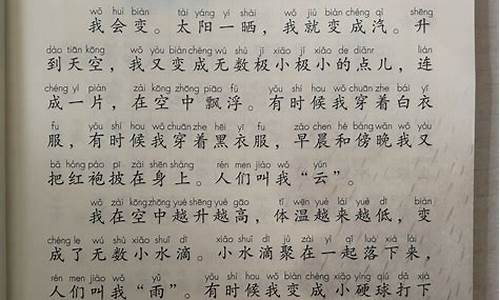 wǒ huì biàn tài yáng yí shài wǒ jiù biàn chéng qì shēng
我会变。太阳一晒，我就变成汽。升
dào tiān kōng wǒ yòu biàn chéng wú shù jí xiǎo jí xiǎo de diǎnr lián
到天空，我又变成无数极小极小的点儿，连
chéng yí piàn zài kōng zhōng piāo fú yǒu shí hou wǒ chuān zhe bái yī
成一片，在空中飘浮。有时候我穿着白衣
fú yǒu shí hou wǒ chuān zhe hēi yī fú zǎo chen hé bàng wǎn wǒ yòu
服，有时候我穿着黑衣服，早晨和傍晚我又
bǎ hóng páo pī zài shēn shang rén men jiào wǒ yún
把红袍披在身上。人们叫我“云”。
wǒ zài kōng zhōng yuè shēng yuè gāo tǐ wēn yuè lái yuè dī biàn
我在空中越升越高，体温越来越低，变
chéng le wú shù xiǎo shuǐ dī xiǎo shuǐ dī jù zài yì qǐ luò xià lái
成了无数小水滴。小水滴聚在一起落下来，
rén men jiào wǒ yǔ yǒu shí hou wǒ biàn chéng xiǎo yìng qiú dǎ xià
人们叫我“雨”。有时候我变成小硬球打下